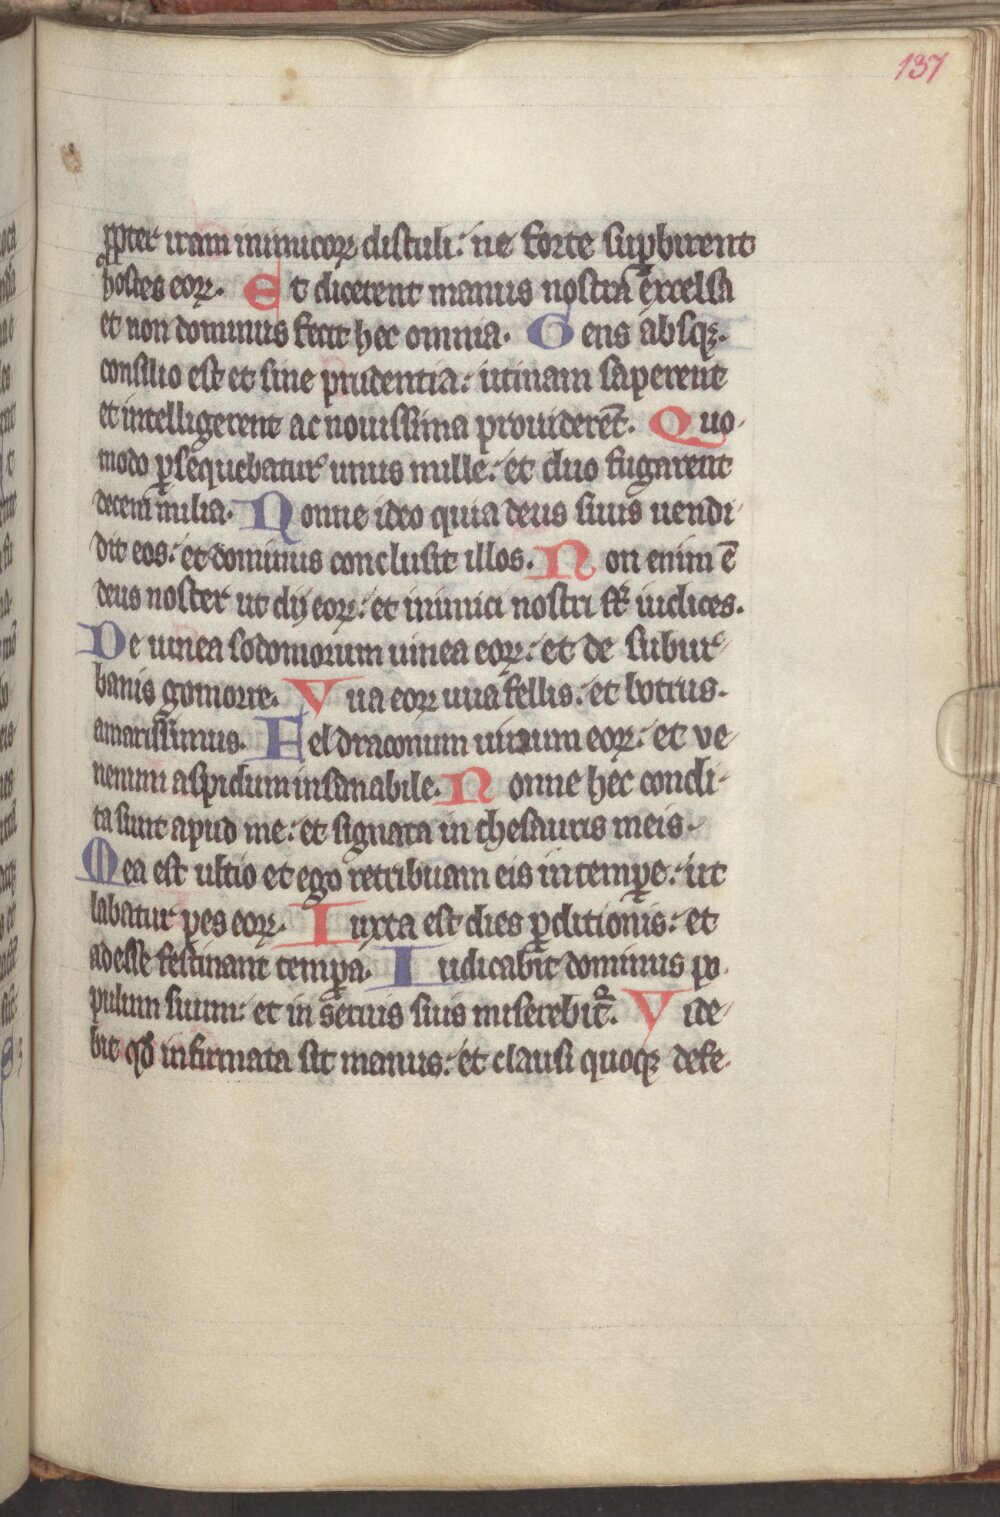 137
ꝓpter iram inimicoꝝ distuli: ne forte suꝑbirent
hostes eoꝝ. Et dicerent manus nostra excelsa
et non dominus fecit hec omnia. Gens absqꝫ
consilio est et sine prudentia: utinam saperent
et intelligerent ac nouissima prouiderēt. Quo-
modo ꝑsequebatur unus mille: et duo fugarent
decem milia. Nonne ideo quia deus suus uendi-
dit eos: et dominus conclusit illos. Non enim ē
deus noster ut dij eoꝝ: et inimici nostri st̄ iudices.
De uinea sodomorum uinea eoꝝ: et de subur-
banis gomorre. Vua eoꝝ uua fellis: et botrus
amarissimus. Fel draconum uinum eoꝝ: et ve
nenum aspidum insanabile. Nonne hec condi-
ta sunt apud me: et signata in thesauris meis.
Mea est ultio et ego retribuam eis in temꝑe: ut
labatur pes eoꝝ. Iuxta est dies ꝑditionis: et
adesse festinant temꝑa. Iudicabit dominus po-
pulum suum: et in seruis suis miserebit᷑. Vide-
bit qđ infirmata sit manus: et clausi quoqꝫ defe-